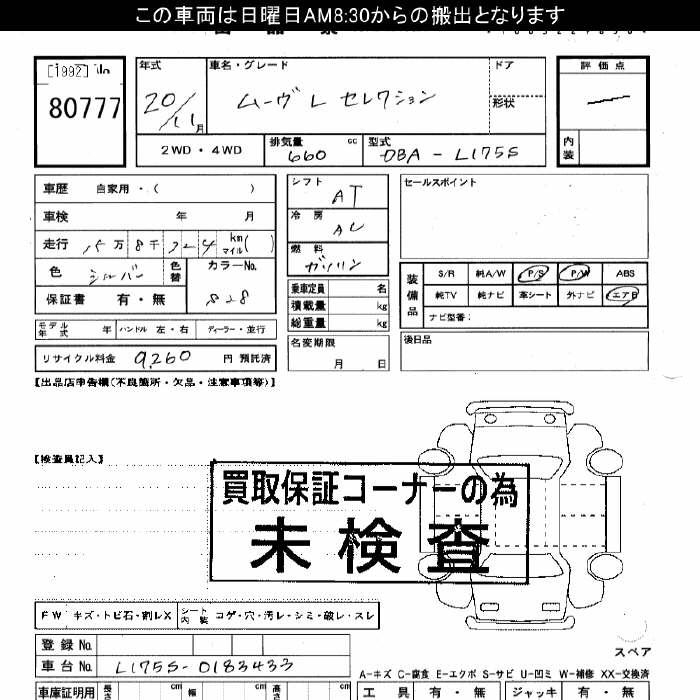 この車両は日曜日AM8:30からの搬出となります
[1992] No
80777
年式 車名・グレード ドア 評価点
20/11月 ムーヴ L セレクション 形状
2WD・4WD 排気量 cc 660 型式 DBA-L175S 内装
車歴 自家用・( )
車検 年 月
走行 15万8千324 km マイル( )
色 シルバー 色替 カラーNo.
保証書 有・無 S28
モデル年式 年 ハンドル 左・右 ディーラー・並行
リサイクル料金 9,260 円 預託済
シフト AT
冷房 AC
燃料 ガソリン
乗車定員 名
積載量 kg
総重量 kg
名変期限
月 日
セールスポイント
装備品 S/R 純A/W P/S P/W ABS
純TV 純ナビ 革シート 外ナビ エアB
ナビ型番:
後日品
【出品店申告欄(不良箇所・欠品・注意事項等)】
【検査員記入】
買取保証コーナーの為
未検査
FW キズ・トビ石・割レX シート内装 コゲ・穴・汚レ・シミ・破レ・スレ
登録No.
車台No. L175S-0183433
スペア
A-キズ C-腐食 E-エクボ S-サビ U-凹ミ W-補修 XX-交換済
車庫証明用 長さ cm 幅 cm 高さ cm 工具 有・無 ジャッキ 有・無